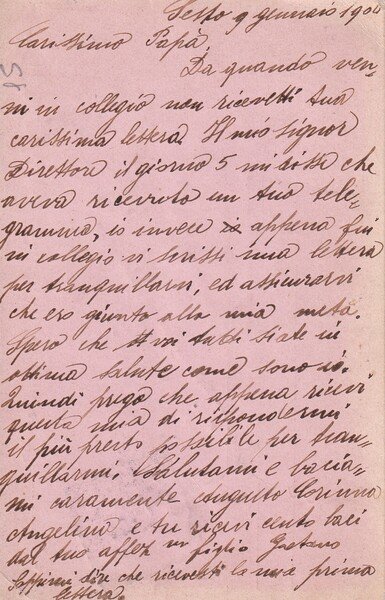 Sesto 9 gennaio 1904
Carissimo Papà
Da quando ven-
ni in collegio non ricevetti tua
carissima lettera. Il mio signor
Direttore il giorno 5 mi disse che
aveva ricevuto un tuo tele-
gramma, io invece appena fui
in collegio vi scrissi una lettera
per tranquillarvi, ed assicurarvi
che ero giunto alla mia meta.
Spero che voi tutti siate in
ottima salute come sono io.
Quindi prego che, appena ricevi
questa mia di rispondermi
il più presto possibile per tran-
quillarmi. Salutami e bacia-
mi caramente Augusto Corinna
Angelina e tu ricevi cento baci
dal tuo affez mo figlio Gaetano
Sappimi dire che ricevesti la mia prima
lettera.
54